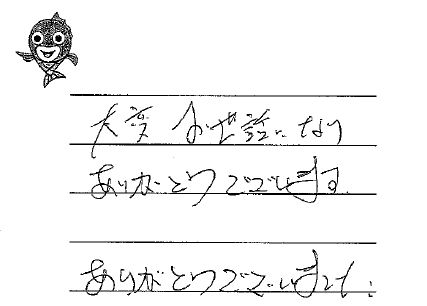 大変お世話になり
ありがとうございます。
ありがとうございました。